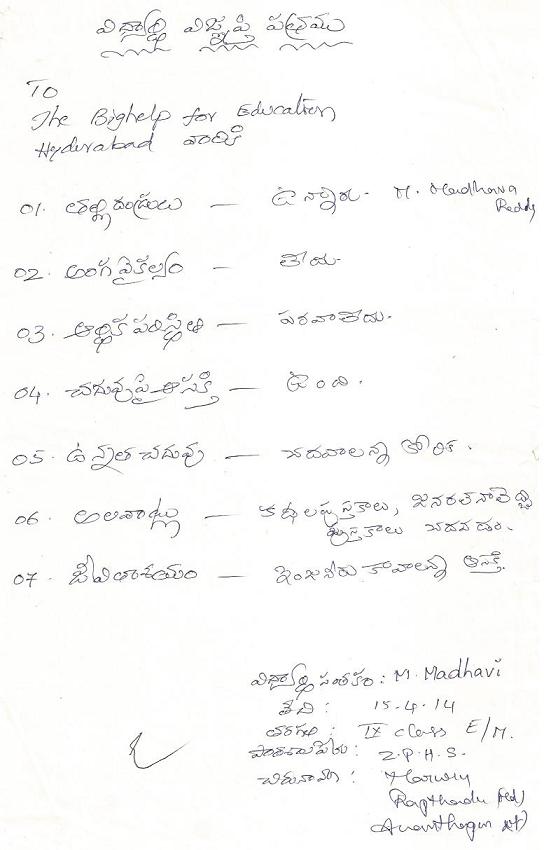 విద్యార్థి విజ్ఞప్తి పత్రము
To
The Bighelp for Education
Hyderabad వారికి
01. తల్లిదండ్రులు — ఉన్నారు. M. Madhava
Reddy
02. అంగవైకల్యం — లేదు.
03. ఆర్థిక పరిస్థితి — పరవాలేదు.
04. చదువుపై ఆసక్తి — ఉంది.
05. ఉన్నత చదువు — చదవాలన్న కోరిక.
06. అలవాట్లు — కథల పుస్తకాలు, జనరల్ నాలెడ్జి
పుస్తకాలు చదవడం.
07. జీవితాశయం — ఇంజనీరు కావాలన్న ఆసక్తి.
విద్యార్థి సంతకం : M. Madhavi
తేది : 15-4-14
తరగతి : IX class E/M.
పాఠశాల పేరు : Z.P.H.S.
చిరునామా :
Rapthadu (Md)